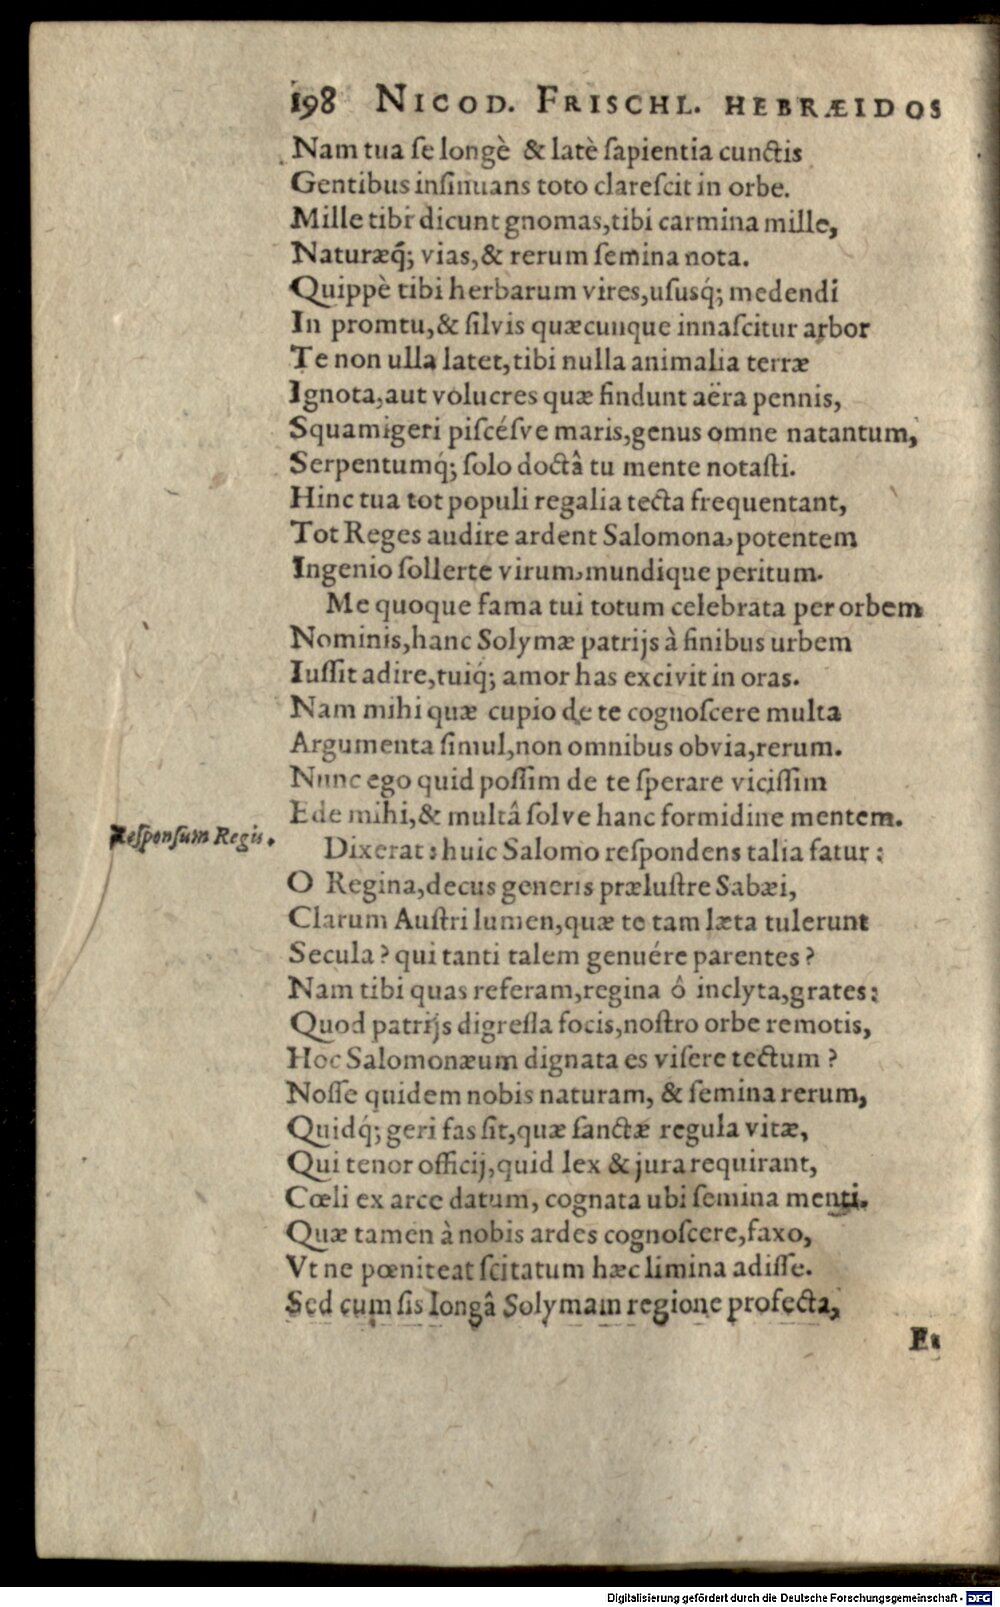 198 NICOD. FRISCHL. HEBRÆIDOS
Nam tua se longè & latè sapientia cunctis
Gentibus insinuans toto clarescit in orbe.
Mille tibi dicunt gnomas, tibi carmina mille,
Naturæq́; vias, & rerum semina nota.
Quippè tibi herbarum vires, ususq́; medendi
In promtu, & silvis quæcunque innascitur arbor
Te non ulla latet, tibi nulla animalia terræ
Ignota, aut volucres quæ findunt aëra pennis,
Squamigeri piscésve maris, genus omne natantum,
Serpentumq́; solo doctâ tu mente notasti.
Hinc tua tot populi regalia tecta frequentant,
Tot Reges audire ardent Salomona, potentem
Ingenio sollerte virum, mundique peritum.
Me quoque fama tui totum celebrata per orbem
Nominis, hanc Solymæ patrijs à finibus urbem
Iussit adire, tuiq́; amor has excivit in oras.
Nam mihi quæ cupio de te cognoscere multa
Argumenta simul, non omnibus obvia, rerum.
Nunc ego quid possim de te sperare vicissim
Ede mihi, & multâ solve hanc formidine mentem.
Responsum Regis.
Dixerat: huic Salomo respondens talia fatur:
O Regina, decus generis prælustre Sabæi,
Clarum Austri lumen, quæ te tam læta tulerunt
Secula? qui tanti talem genuére parentes?
Nam tibi quas referam, regina ô inclyta, grates:
Quod patrijs digressa focis, nostro orbe remotis,
Hoc Salomonæum dignata es visere tectum?
Nosse quidem nobis naturam, & semina rerum,
Quidq́; geri fas sit, quæ sanctæ regula vitæ,
Qui tenor officij, quid lex & jura requirant,
Cœli ex arce datum, cognata ubi semina menti.
Quæ tamen à nobis ardes cognoscere, faxo,
Vt ne pœniteat scitatum hæc limina adisse.
Sed cum sis longâ Solymam regione profecta,
Et
Digitalisierung gefördert durch die Deutsche Forschungsgemeinschaft - DFG